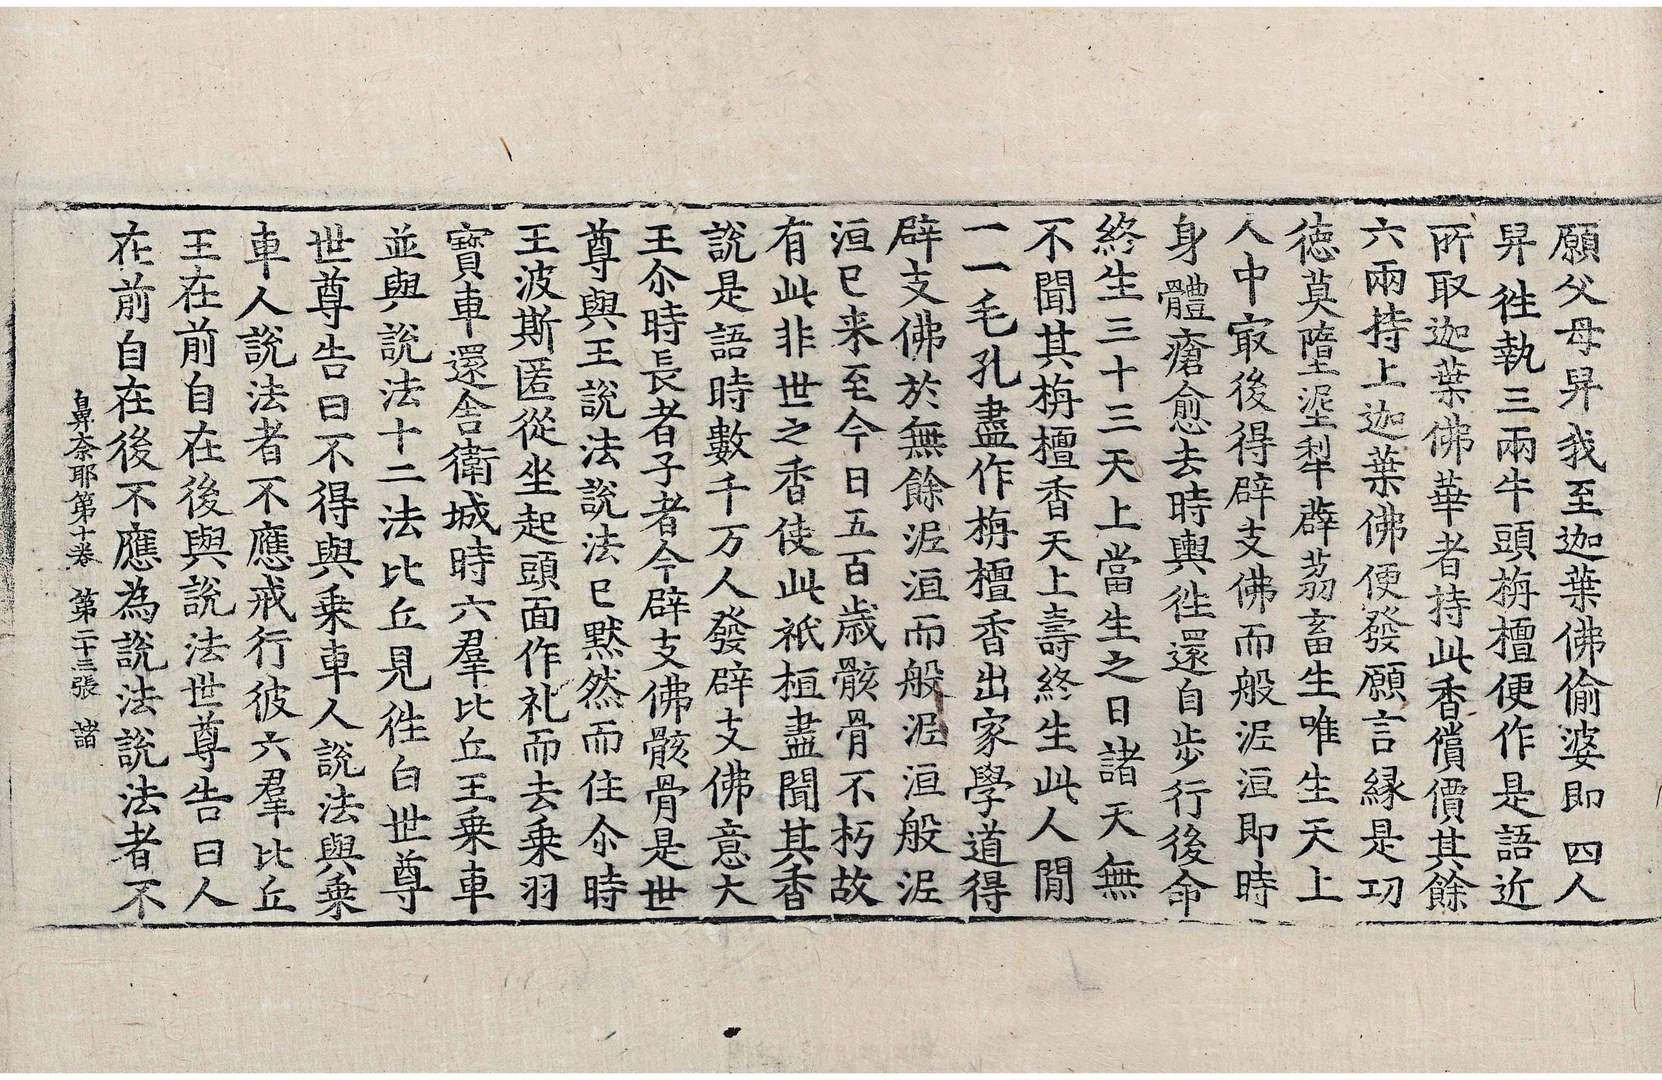 願父母舁我至迦葉佛偷婆即四人
舁徃執三兩牛頭栴檀便作是語近
所取迦葉佛華者持此香償價其餘
六兩持上迦葉佛便發願言縁是功
徳莫墮埿犁薜茘畜生唯生天上
人中㝡後得辟支佛而般泥洹即時
身體瘡愈去時輿徃還自步行後命
終生三十三天上當生之日諸天無
不聞其栴檀香天上壽終生此人閒
一一毛孔盡作栴檀香出家學道得
辟支佛於無餘泥洹而般泥洹般泥
洹已来至今日五百歳骸骨不朽故
有此非世之香使此祇桓盡聞其香
說是語時數千万人發辟支佛意大
王尒時長者子者今辟支佛骸骨是世
尊與王說法說法已黙然而住尒時
王波斯匿從坐起頭面作礼而去乗羽
寶車還舍衛城時六羣比丘王乗車
並與說法十二法比丘見徃白世尊
世尊告曰不得與乗車人說法與乗
車人說法者不應戒行彼六羣比丘
王在前自在後與說法世尊告曰人
在前自在後不應為說法說法者不
鼻奈耶第十卷 第二十三張 諸